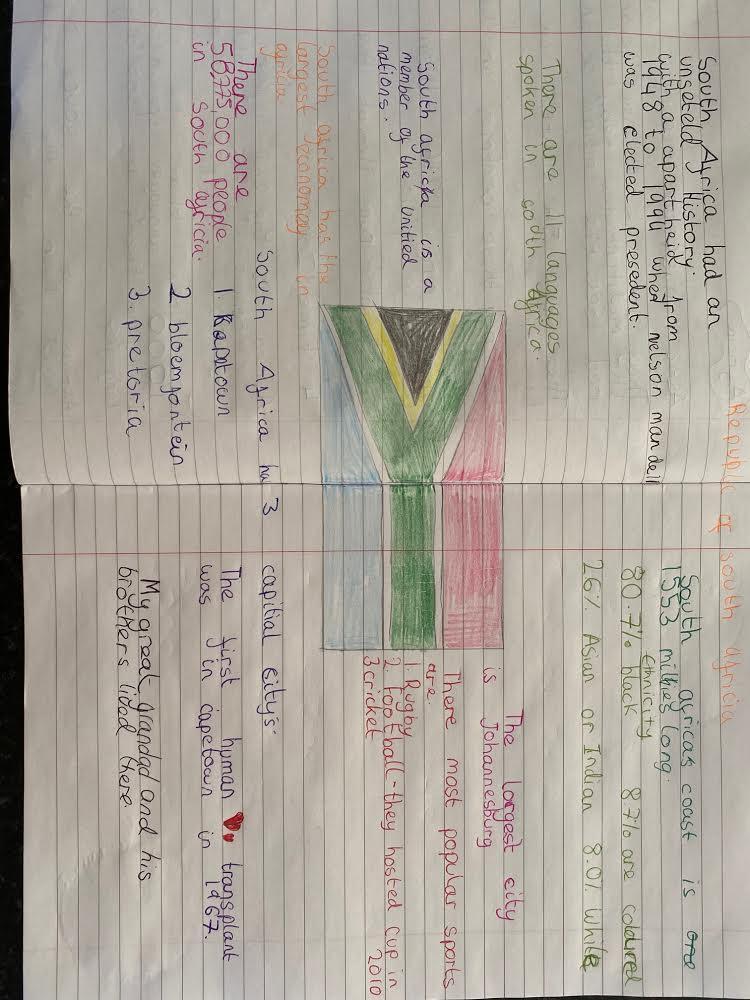 Republic of south africia
South Africa had an
ungeteld history:
with a apartheid from
1948 to 1994 when nelson mandell
was elected presedent.
There are 11 languages
spoken in south Africa.
South africka is a
member of the unitied
nations.
South africa has the
largest economey in
africia
There are
58,775,000 people
in South africia.
South Africa has 3 capitial city's.
1. Kapstown
2 bloemfontein
3. pretoria
South africas coast is one
1553 milies long.
Ethnicity
80.7% black 8.7% are coloured
2.6% Asian or Indian 8.0% white
The largest city
is Johannesburg
There most popular sports
are.
1. Rugby
2. football - they hosted cup in 2010
3 cricket
The first human transplant
was in capetown in 1967.
My great grandad and his
brothers lived there.